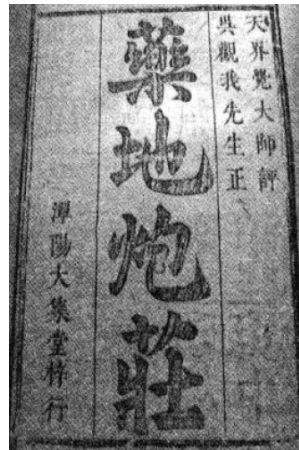 天界覺大師評
吳觀我先生正
藥地炮莊
潭陽大集堂梓行